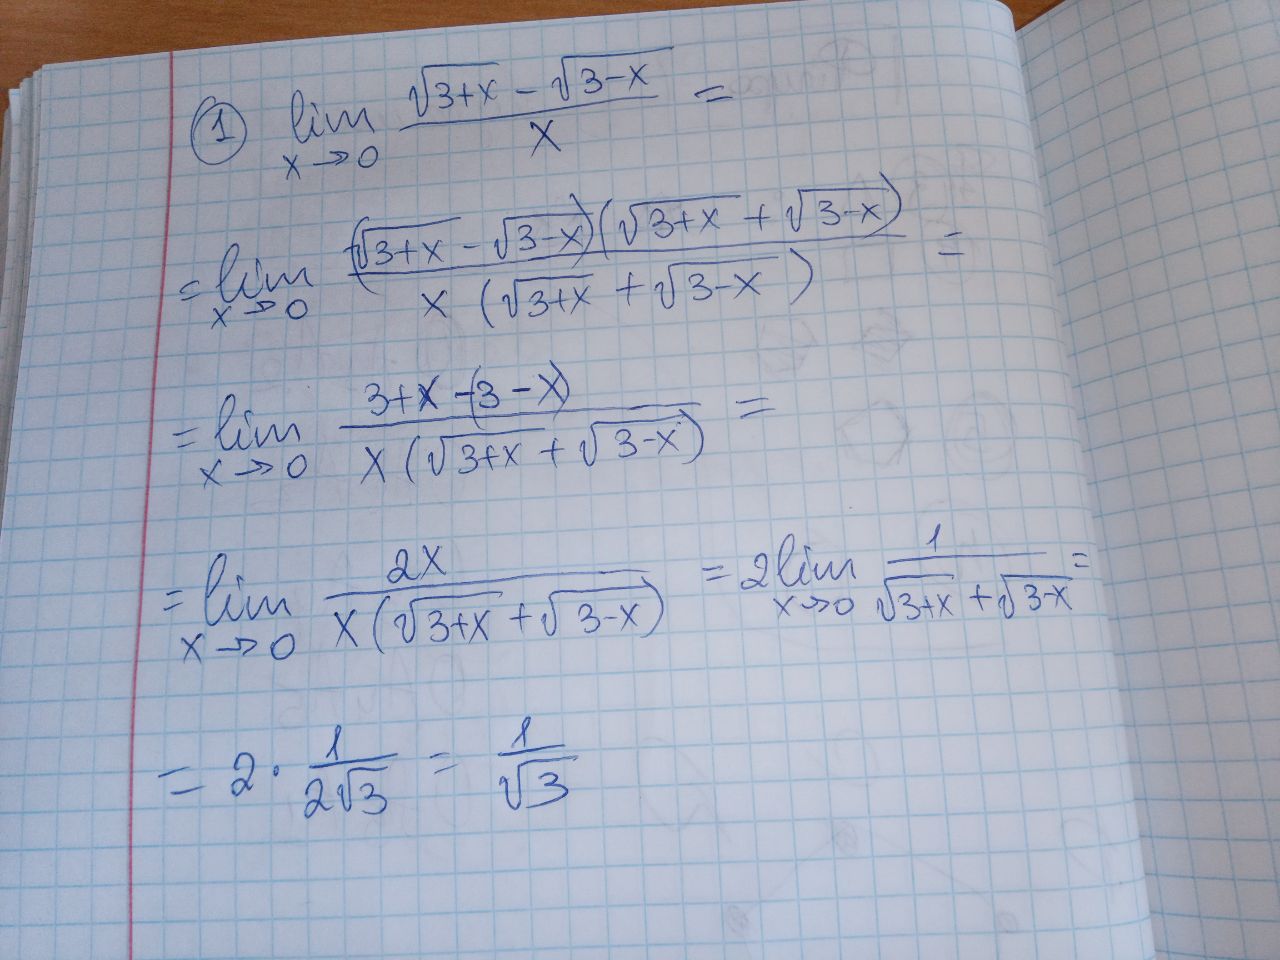 ① lim x→0 (√(3+x) - √(3-x)) / x =
= lim x→0 ((√(3+x) - √(3-x))(√(3+x) + √(3-x))) / (x(√(3+x) + √(3-x))) =
= lim x→0 (3+x-(3-x)) / (x(√(3+x) + √(3-x))) =
= lim x→0 2x / (x(√(3+x) + √(3-x))) = 2 lim x→0 1 / (√(3+x) + √(3-x)) =
= 2 · 1 / (2√3) = 1 / √3